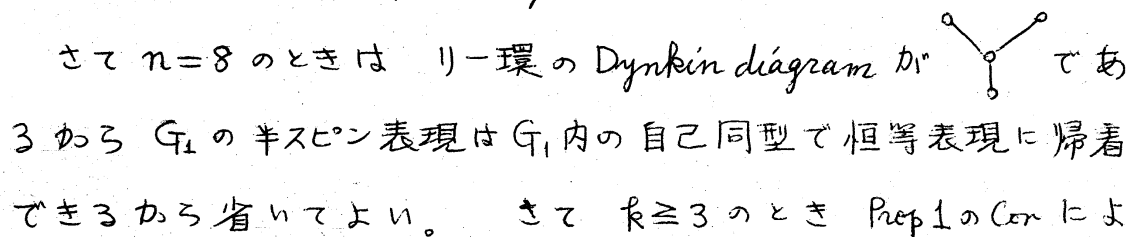 さて n=8 のときは リー環の Dynkin diagram が であ
るから G₁ の半スピン表現は G₁内の自己同型で恒等表現に帰着
できるから省いてよい。 さて k≧3 のとき Prop1のCorによ